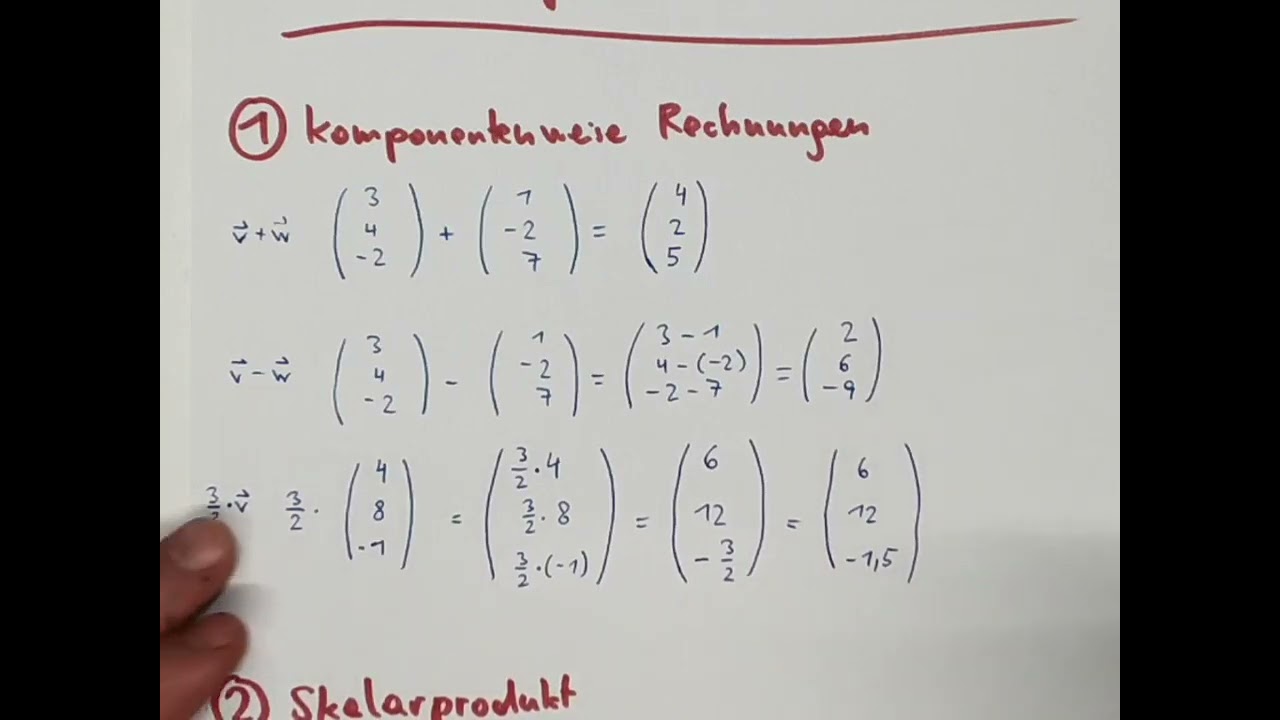 ① Komponentenweise Rechnungen
v⃗ + w⃗ (3 4 -2) + (1 -2 7) = (4 2 5)
v⃗ - w⃗ (3 4 -2) - (1 -2 7) = (3-1 4-(-2) -2-7) = (2 6 -9)
3/2 · v⃗ 3/2 · (4 8 -1) = (3/2·4 3/2·8 3/2·(-1)) = (6 12 -3/2) = (6 12 -1,5)
② Skalarprodukt